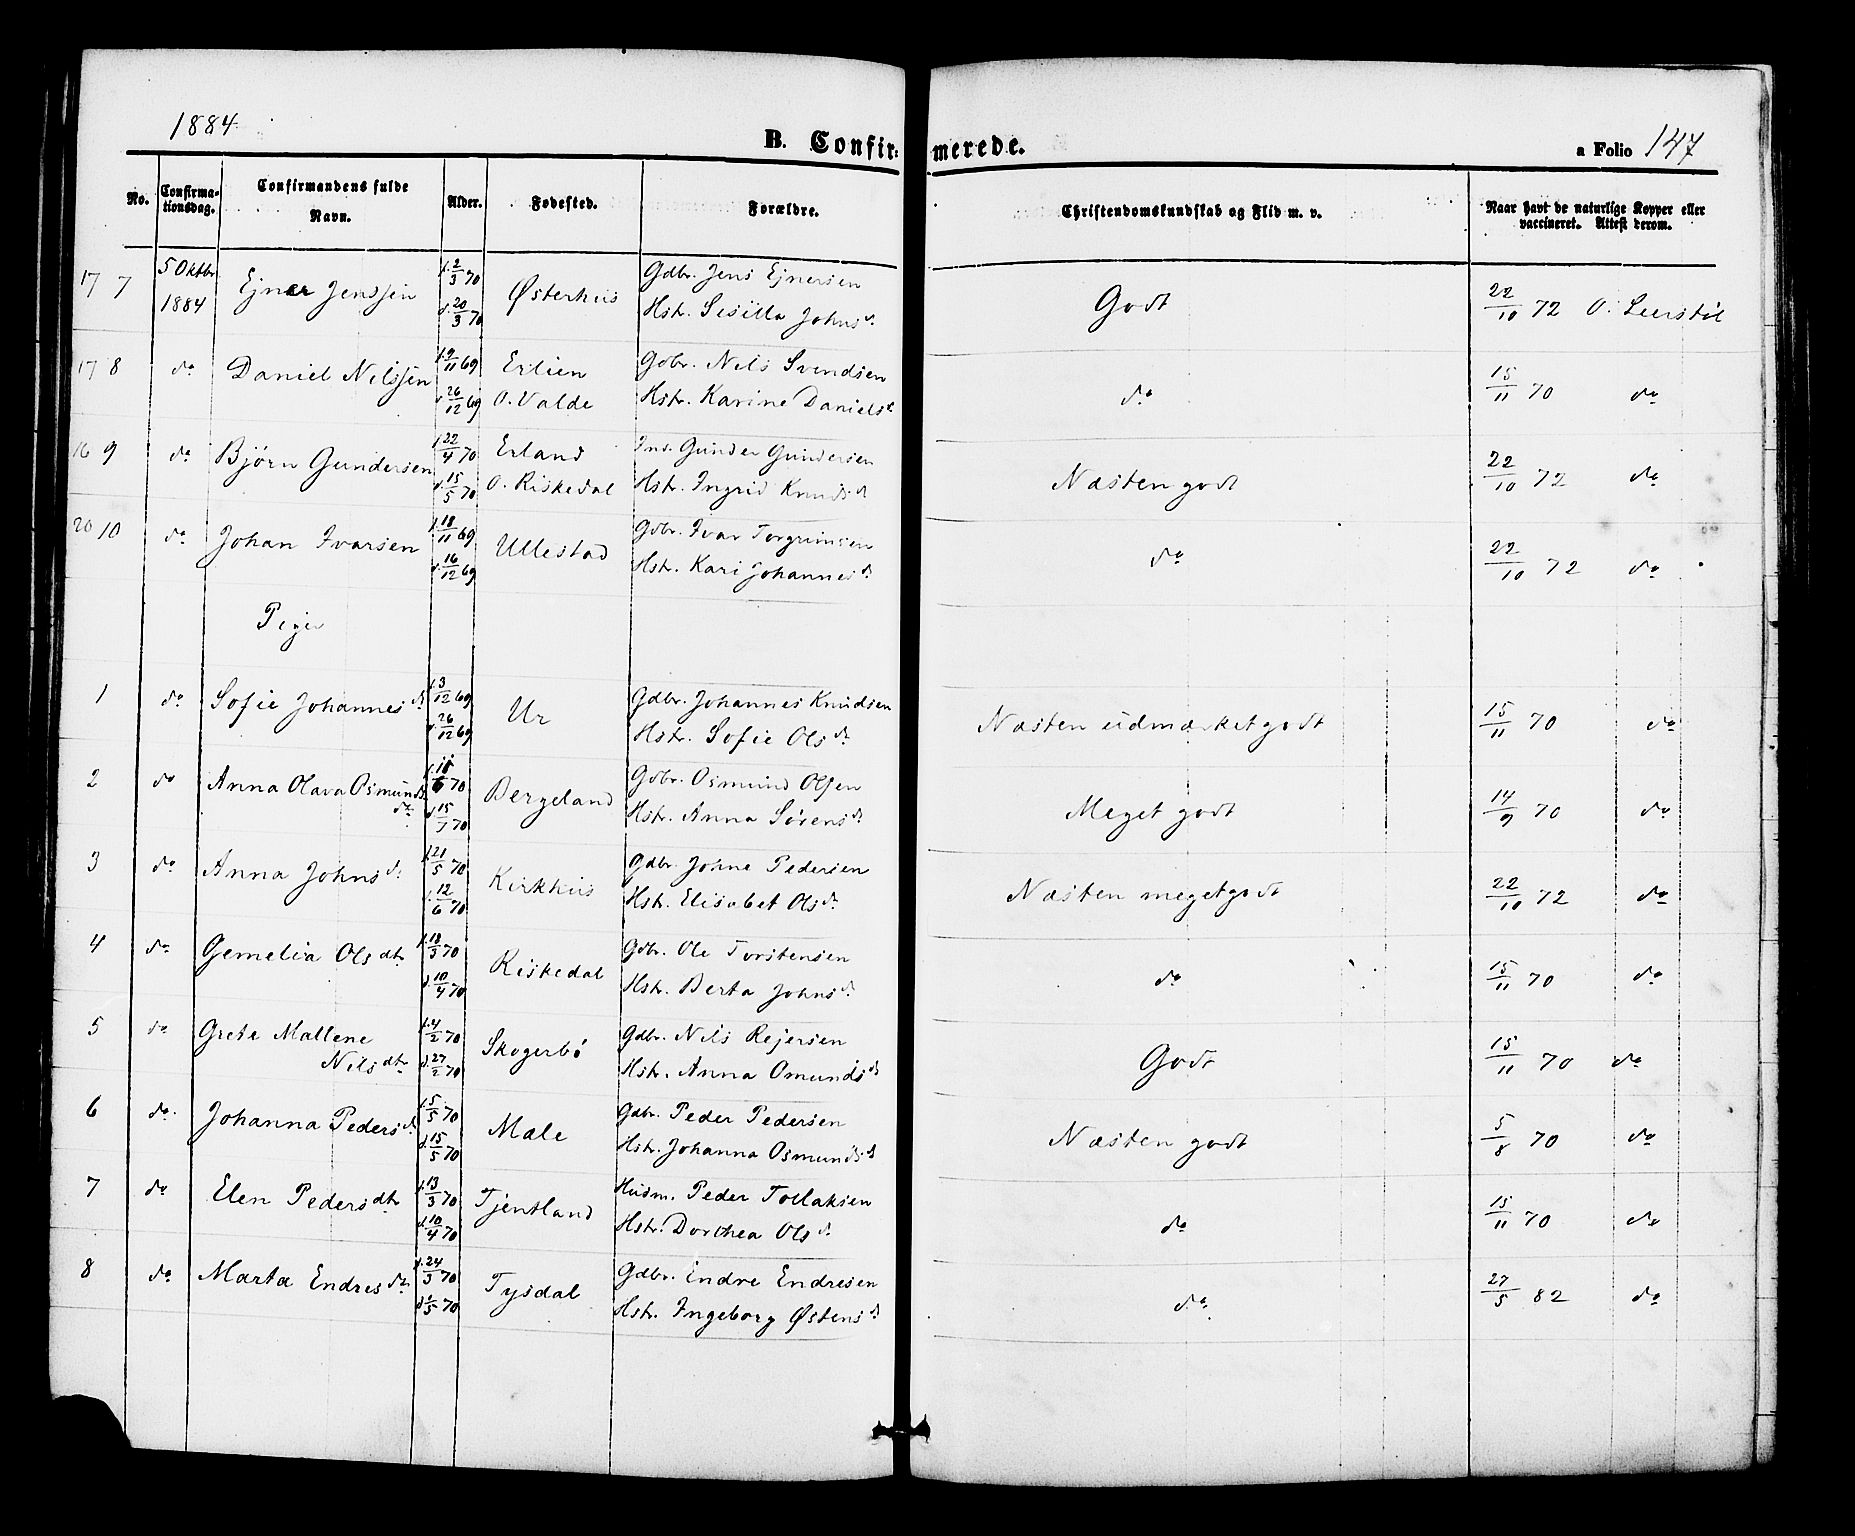 1884
B. Confirmerede.
a Folio 147
No. Confirmationsdag. Confirmandens fulde Navn. Alder. Fødested. Forældre. Christendomskundskab og Flid m. v. Naar havt de naturlige Kopper eller vaccineret. Attest derom.
17 7 5 Oktbr 1884 Ejner Jenssen f. 2/3 70 d. 20/3 70 Østerhus Gdbr. Jens Ejnersen
Hstr. Sesilla Johnsd. Godt 22/10 72 O. Leerstøl
17 8 do Daniel Nilssen f. 9/11 69 d. 26/12 69 Erlien O. Valde Gdbr. Nils Svendsen
Hstr. Karine Danielsd do 15/11 70 do
16 9 do Bjørn Gundersen f. 22/4 70 d. 15/5 70 Erland O. Riskedal Ins. Gunder Gundersen
Hstr. Ingrid Knudsd Næsten godt 22/10 72 do
20 10 do Johan Ivarsen f. 18/11 69 d. 16/12 69 Ullestad Gdbr. Ivar Torgrimsen
Hstr. Kari Johannesd. do 22/10 72 do
Piger
1 do Sofie Johannesd. f. 3/12 69 d. 26/12 69 Ur Gdbr. Johannes Knudsen
Hstr. Sofie Olsd. Næsten udmærket godt 15/11 70 do
2 do Anna Olava Osmundsdr. 70 d. 15/7 70 Bergeland Gdbr. Osmund Olsen
Hstr. Anna Sørensd. Meget godt 14/9 70 do
3 do Anna Johnsd. f. 21/5 70 d. 12/6 70 Kirkhus Gdbr. Johne Pedersen
Hstr. Elisabet Olsd. Næsten meget godt 22/10 72 do
4 do Gemelia Olsdtr. f. 18/3 70 d. 10/4 70 Riskedal Gdbr. Ole Torstensen
Hstr. Berta Johnsd. do 15/11 70 do
5 do Grete Mallene Nilsdtr. f. 4/2 70 d. 27/2 70 Skogerbø Gdbr. Nils Rejersen
Hstr. Anna Omundsd. Godt 15/11 70 do
6 do. Johanna Pedersd. f. 5/5 70 d. 15/5 70 Male Gdbr. Peder Pedersen
Hstr. Johanna Osmundsd. Næsten godt 5/8 70 do
7 do Elen Pedersdtr. f. 13/3 70 d. 10/4 70 Tjentland Husm. Peder Tollaksen
Hstr. Dorthea Olsd. do 15/11 70 do
8 do Marta Endresdr. f. 24/3 70 70 Tysdal Gdbr. Endre Endresen
Hstr. Ingeborg Østensd. do. 27/5 82 do